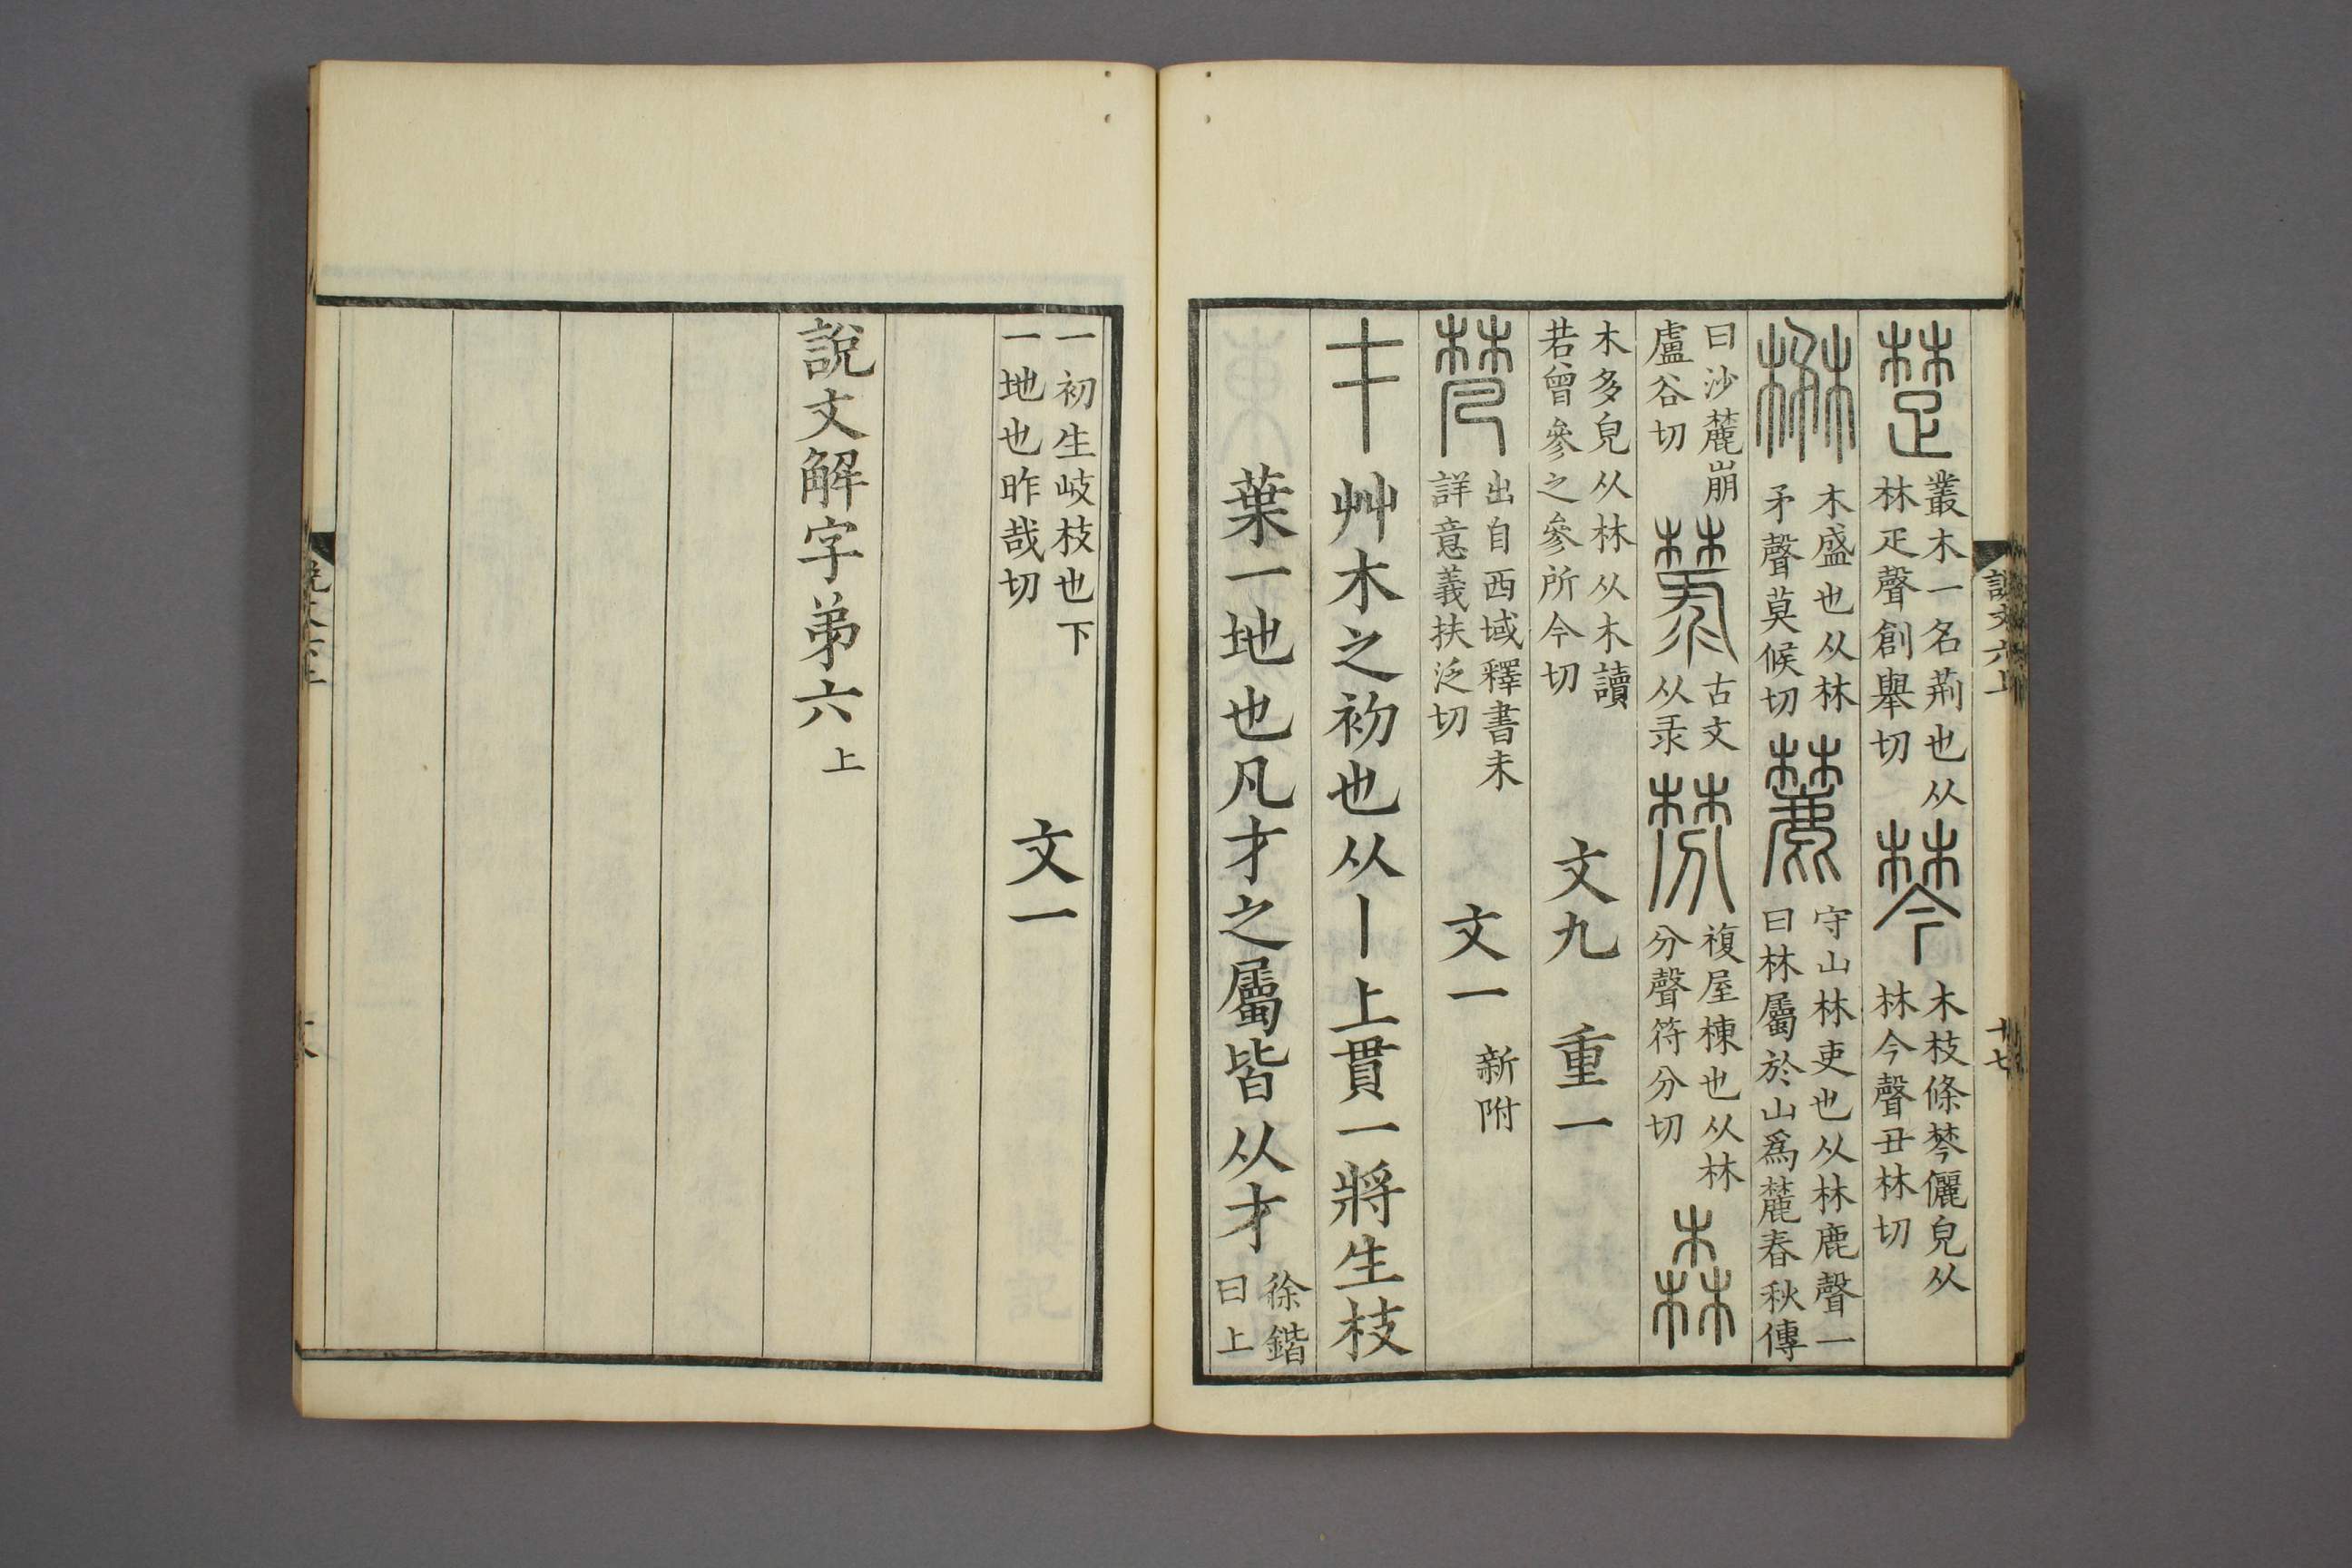 說文六上 十七
楚 叢木一名荊也从林疋聲創舉切 棽 木枝條棽儷皃从林今聲丑林切
楙 木盛也从林矛聲莫候切 麓 守山林吏也从林鹿聲一曰林屬於山爲麓春秋傳
曰沙麓崩盧谷切 𣚎 古文从彔 棼 複屋棟也从林分聲符分切 森
木多皃从林从木讀若曾參之參所今切 文九 重一
梵 出自西域釋書未詳意義扶泛切 文一 新附
才 艸木之初也从丨上貫一將生枝
葉一地也凡才之屬皆从才 徐鍇曰上
一初生岐枝也下一地也昨哉切 文一
說文解字弟六上